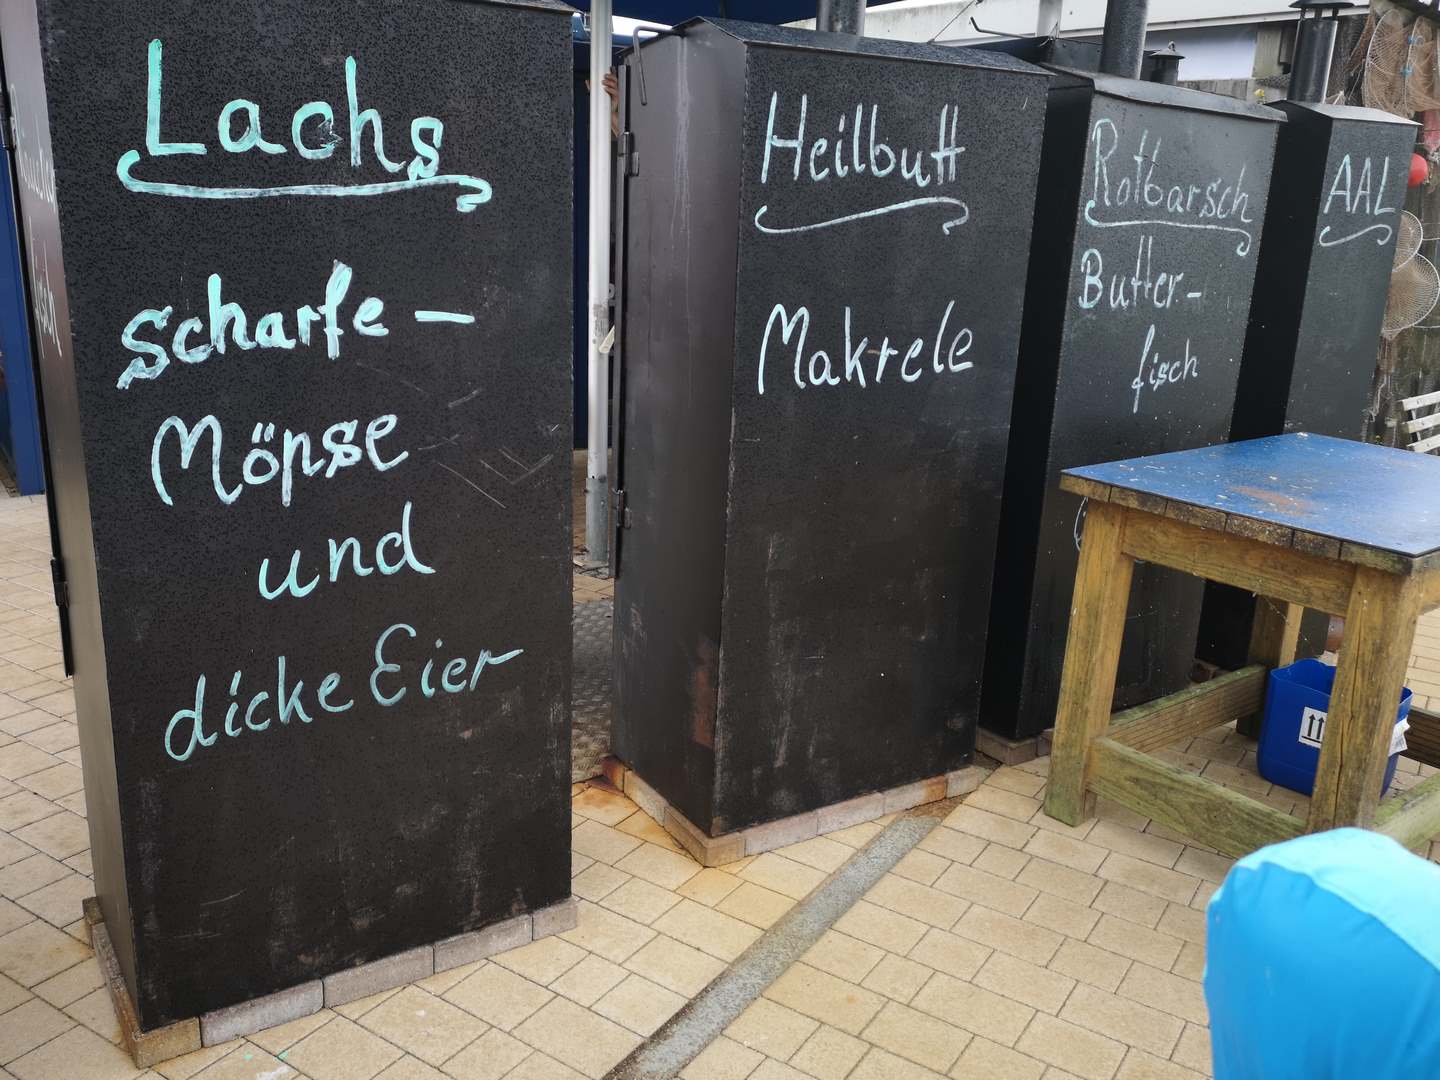 Lachs
scharfe -
Möpse
und
dicke Eier
Heilbutt
Makrele
Rotbarsch
Butter-
fisch
AAL